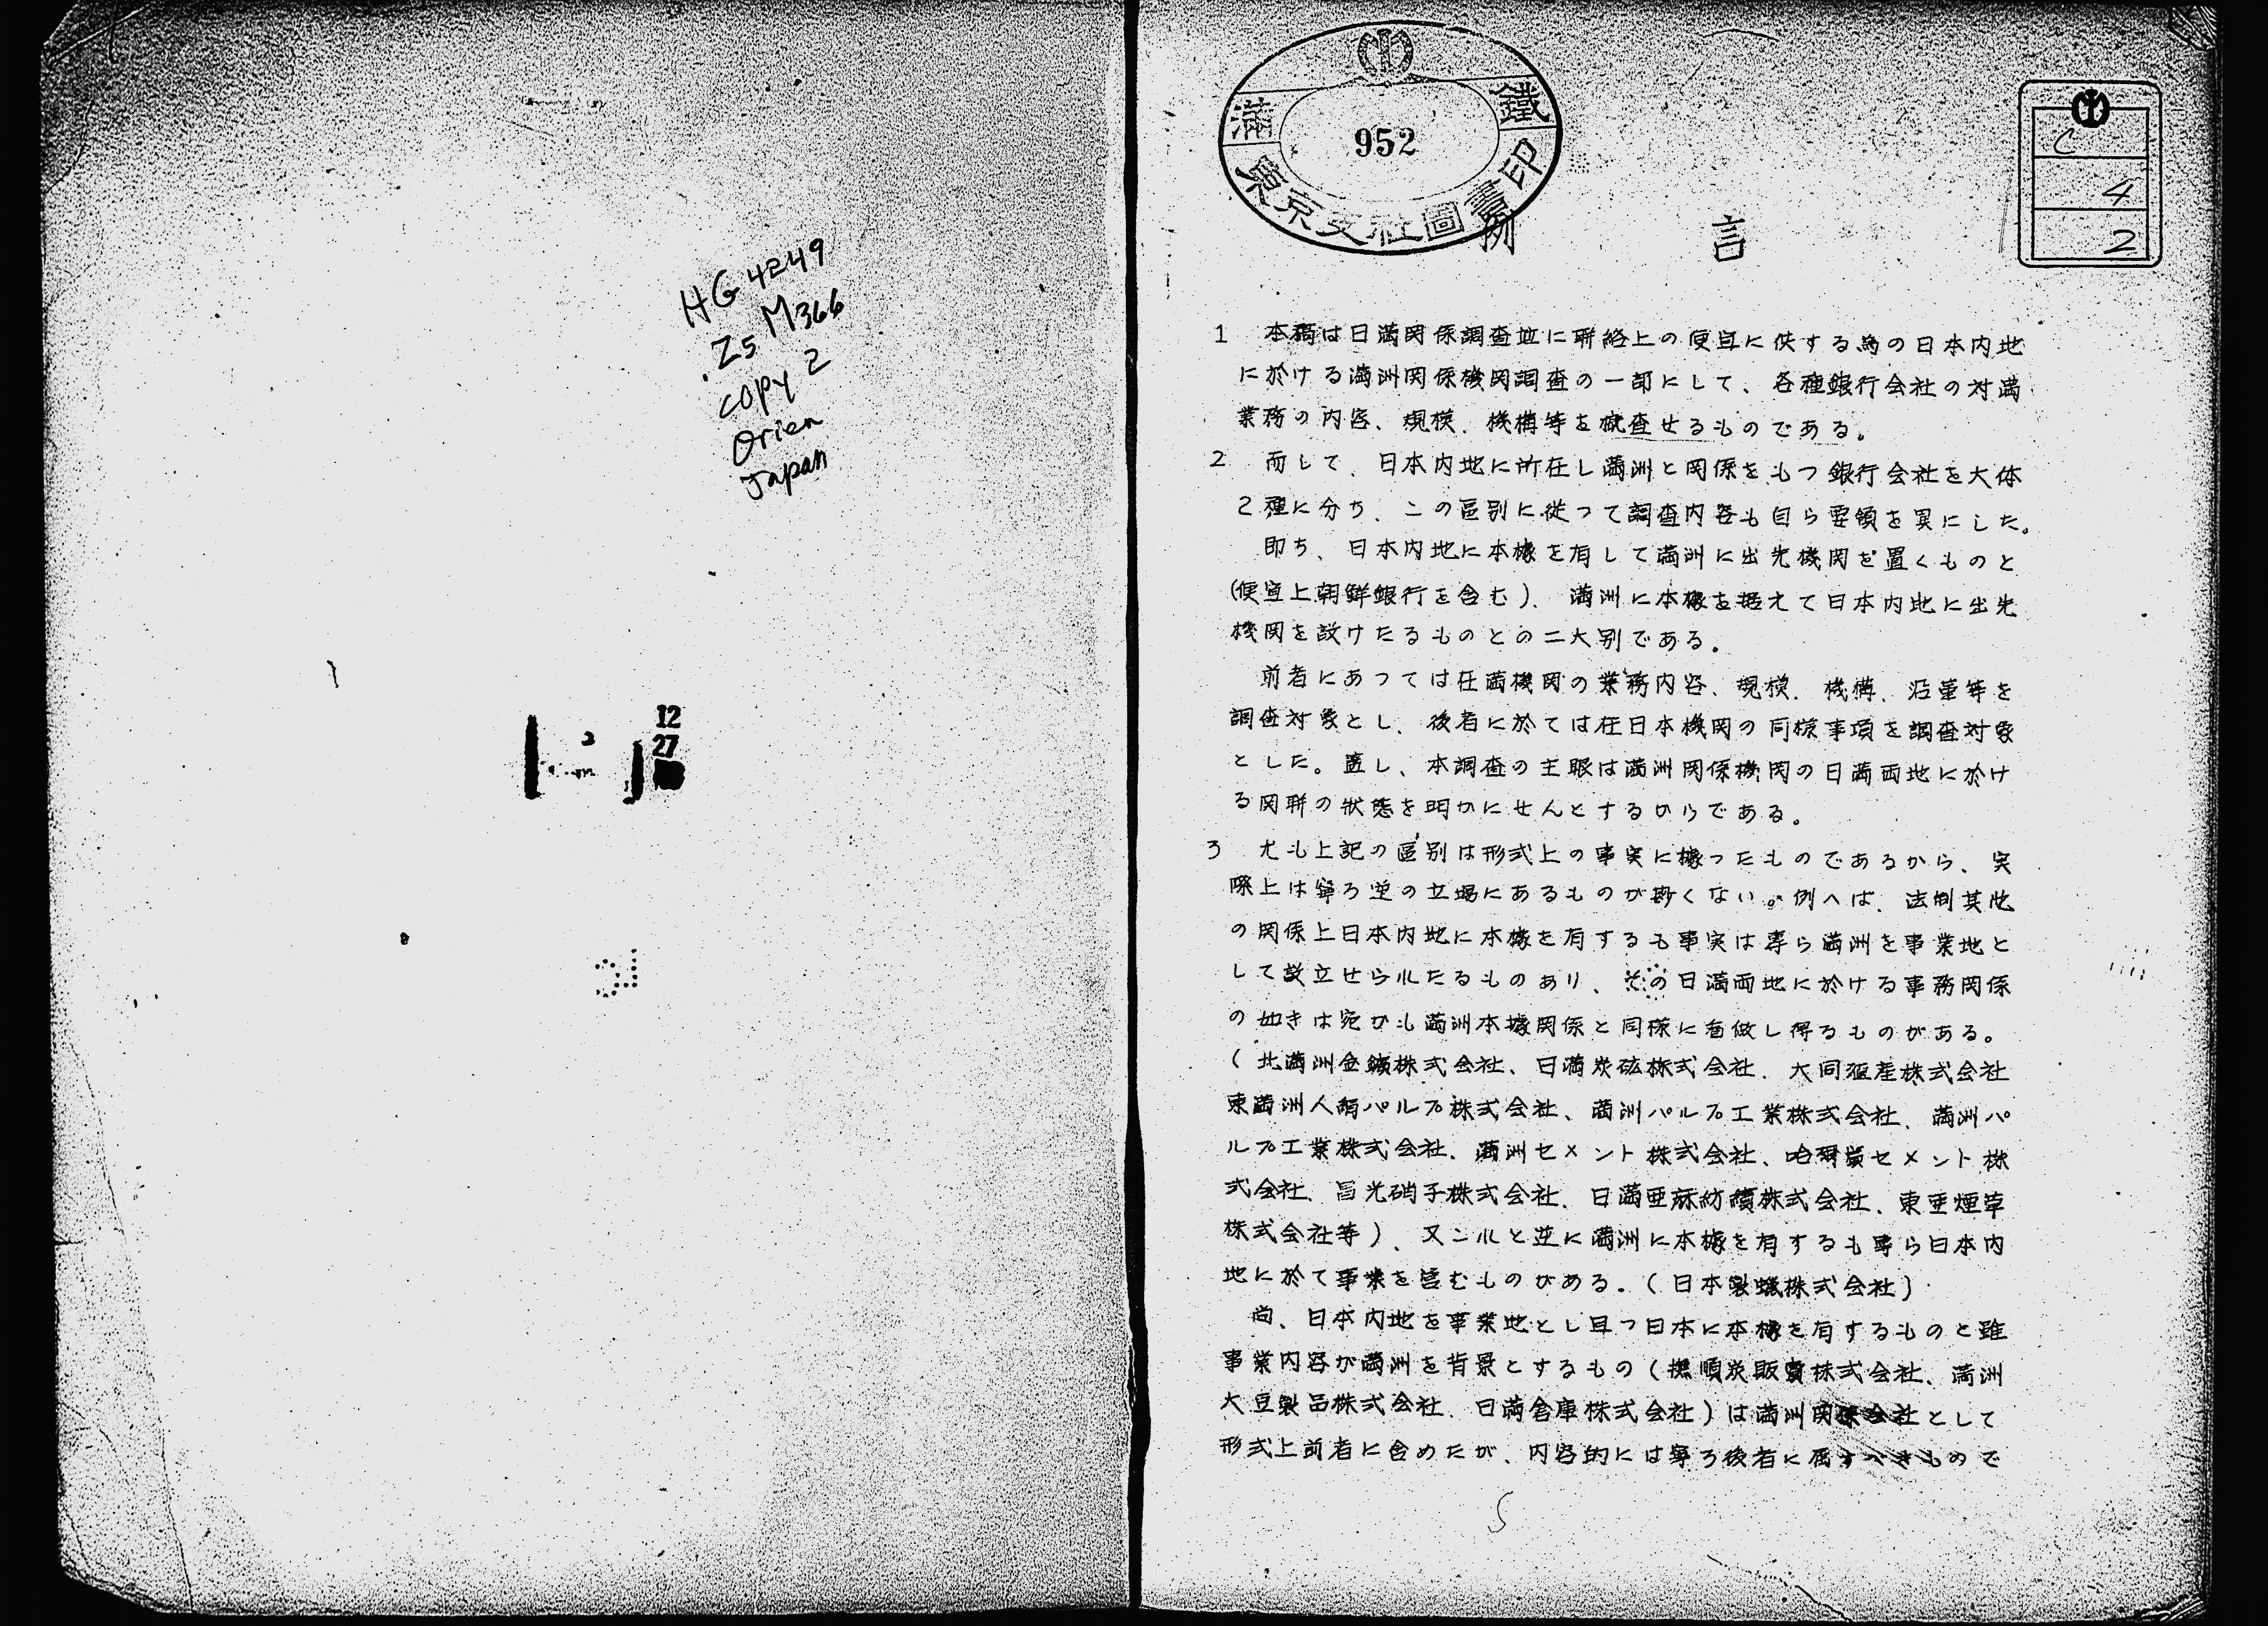 HG4249
.Z5M366
copy 2
Orien
Japan
12
27
満鐵東京支社圖書印
952
C
4
2
例言
1 本稿は日満関係調査並に聯絡上の便宜に供する為の日本内地
に於ける満洲関係機関調査の一部にして、各種銀行会社の対満
業務の内容、規模、機構等を概査せるものである。
2 而して、日本内地に所在し満洲と関係をもつ銀行会社を大体
2種に分ち、この區別に従つて調査内容も自ら要領を異にした。
即ち、日本内地に本據を有して満洲に出先機関を置くものと
(便宜上朝鮮銀行を含む)、満洲に本據を据えて日本内地に出先
機関を設けたるものとの二大別である。
前者にあつては在満機関の業務内容、規模、機構、沿革等を
調査対象とし、後者に於ては在日本機関の同様事項を調査対象
とした。蓋し、本調査の主眼は満洲関係機関の日満両地に於け
る関聯の狀態を明かにせんとするからである。
3 尤も上記の區別は形式上の事実に據つたものであるから、実
際上は寧ろ逆の立場にあるものが尠くない。例へば、法制其他
の関係上日本内地に本據を有するも事実は専ら満洲を事業地と
して設立せられたるものあり、その日満両地に於ける事務関係
の如きは宛かも満洲本據関係と同様に看做し得るものがある。
(北満洲金鑛株式会社、日満炭砿株式会社、大同殖産株式会社
東満洲人絹パルプ株式会社、満洲パルプ工業株式会社、満洲パ
ルプ工業株式会社、満洲セメント株式会社、哈爾賓セメント株
式会社、昌光硝子株式会社、日満亜麻紡績株式会社、東亜煙草
株式会社等)、又之れと逆に満洲に本據を有するも専ら日本内
地に於て事業を営むものがある。(日本製蠟株式会社)
尚、日本内地を事業地とし且つ日本に本據を有するものと雖
事業内容が満洲を背景とするもの(撫順炭販賣株式会社、満洲
大豆製品株式会社、日満倉庫株式会社)は満洲関係会社として
形式上前者に含めたが、内容的には寧ろ後者に属すべきもので